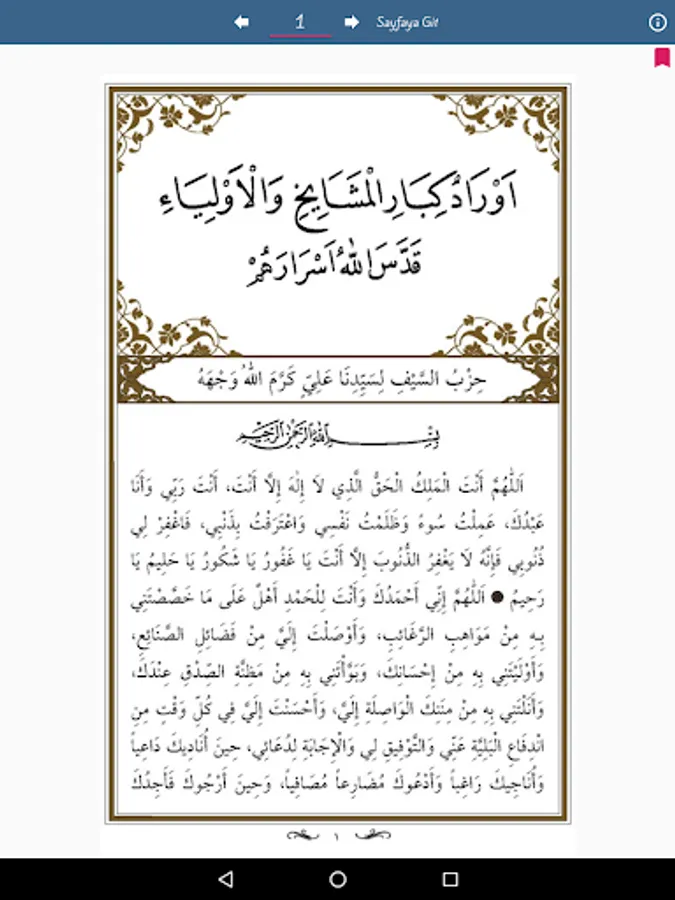 1 Sayfaya Git
اَوْرَادُ كِبَارِ الْمَشَايِخِ وَالْاَوْلِيَاءِ
قَدَّسَ اللهُ اَسْرَارَهُمْ
حِزْبُ السَّيْفِ لِسَيِّدِنَا عَلِيٍّ كَرَّمَ اللهُ وَجْهَهُ
بِسْمِ اللهِ الرَّحْمٰنِ الرَّحِيمِ
اَللّٰهُمَّ أَنْتَ الْمَلِكُ الْحَقُّ الَّذِي لَا إِلٰهَ إِلَّا أَنْتَ، أَنْتَ رَبِّي وَأَنَا
عَبْدُكَ، عَمِلْتُ سُوءً وَظَلَمْتُ نَفْسِي وَاعْتَرَفْتُ بِذَنْبِي، فَاغْفِرْ لِي
ذُنُوبِي فَإِنَّهُ لَا يَغْفِرُ الذُّنُوبَ إِلَّا أَنْتَ يَا غَفُورُ يَا شَكُورُ يَا حَلِيمُ يَا
رَحِيمُ ● اَللّٰهُمَّ إِنِّي أَحْمَدُكَ وَأَنْتَ لِلْحَمْدِ أَهْلٌ عَلَى مَا خَصَّصْتَنِي
بِهِ مِنْ مَوَاهِبِ الرَّغَائِبِ، وَأَوْصَلْتَ إِلَيَّ مِنْ فَضَائِلِ الصَّنَائِعِ،
وَأَوْلَيْتَنِي بِهِ مِنْ إِحْسَانِكَ، وَبَوَّأْتَنِي بِهِ مِنْ مَظِنَّةِ الصِّدْقِ عِنْدَكَ،
وَأَنَلْتَنِي بِهِ مِنْ مِنَنِكَ الْوَاصِلَةِ إِلَيَّ، وَأَحْسَنْتَ إِلَيَّ فِي كُلِّ وَقْتٍ مِنِ
انْدِفَاعِ الْبَلِيَّةِ عَنِّي وَالتَّوْفِيقِ لِي وَالْإِجَابَةِ لِدُعَائِي، حِينَ أُنَادِيكَ دَاعِياً
وَأُنَاجِيكَ رَاغِباً وَأَدْعُوكَ مُضَارِعاً مُصَافِياً، وَحِينَ أَرْجُوكَ فَأَجِدُكَ
١